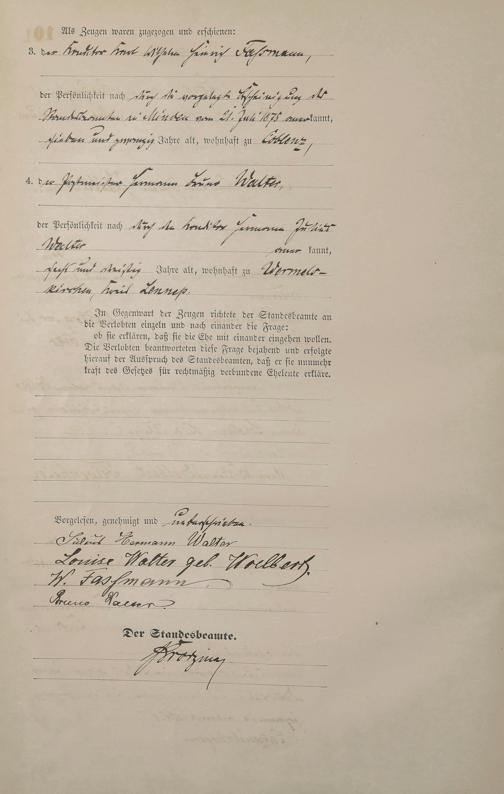 Als Zeugen waren zugezogen und erschienen:
3. der Konditor Karl Wilhelm Heinrich Faßmann,
der Persönlichkeit nach durch die vorgelegte Bescheinigung des
Standesbeamten in Minden vom 21. Juli 1875 anerkannt,
sieben und zwanzig Jahre alt, wohnhaft zu Coblenz,
4. der Postmeister Hermann Bruno Walter,
der Persönlichkeit nach durch den Konditor Hermann Julius
Walter anerkannt,
sechs und dreißig Jahre alt, wohnhaft zu Wermels-
kirchen, Kreis Lennep.
In Gegenwart der Zeugen richtete der Standesbeamte an
die Verlobten einzeln und nach einander die Frage:
ob sie erklären, daß sie die Ehe mit einander eingehen wollen.
Die Verlobten beantworteten diese Frage bejahend und erfolgte
hierauf der Ausspruch des Standesbeamten, daß er sie nunmehr
kraft des Gesetzes für rechtmäßig verbundene Eheleute erkläre.
Vorgelesen, genehmigt und unterschrieben.
Julius Hermann Walter
Louise Walter geb. Woelbert.
W. Fassmann
Bruno Walter
Der Standesbeamte.